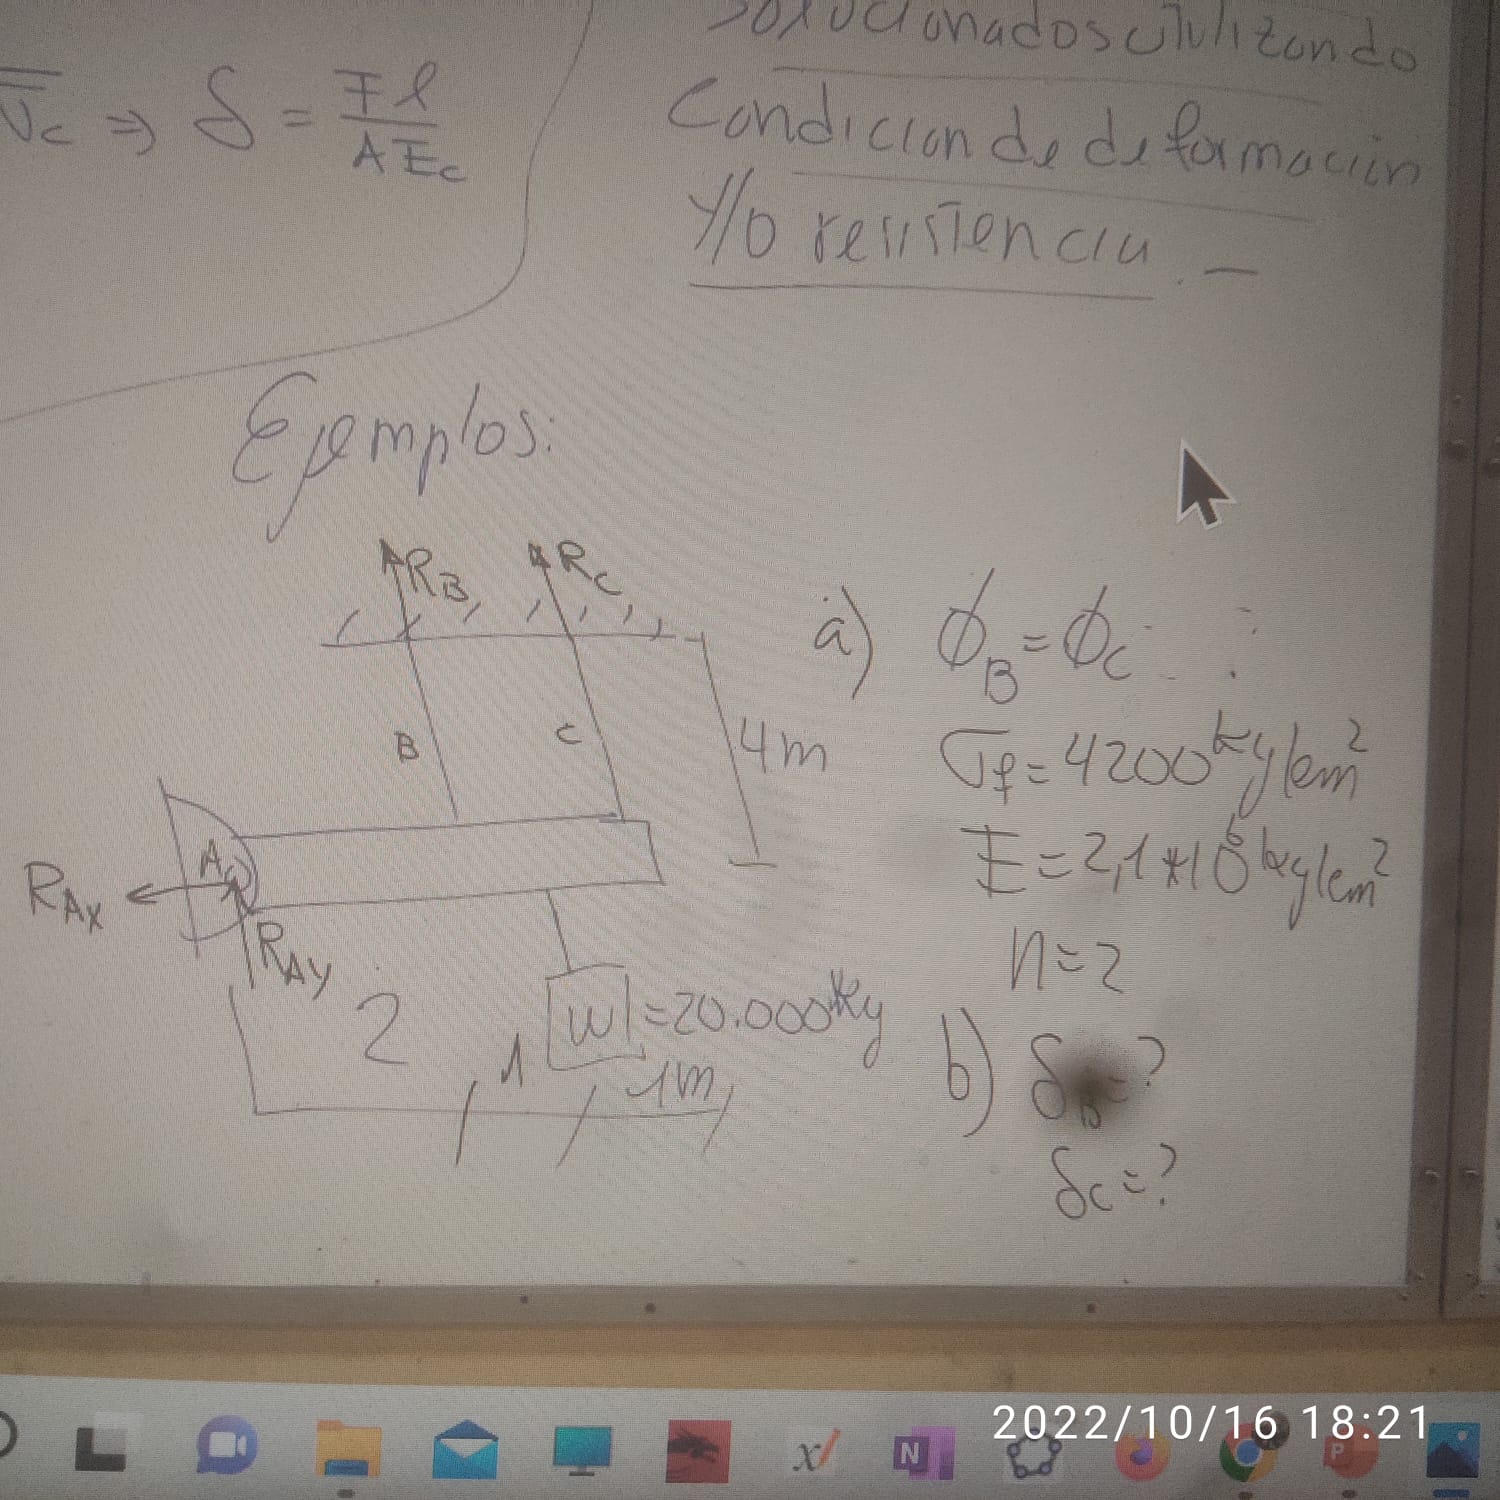 solucionados utilizando
Condicion de deformación
y/o resistencia.-
Vc ⇒ δ = Fl / AEc
Ejemplos:
RB RC
B C 4m
A
RAX
RAY
2 1 1m
W = 20.000kg
a) ϕB = ϕC :
σf = 4200 kg/cm²
E = 2,1*10⁶ kg/cm²
n = 2
b) δB = ?
δc = ?
2022/10/16 18:21